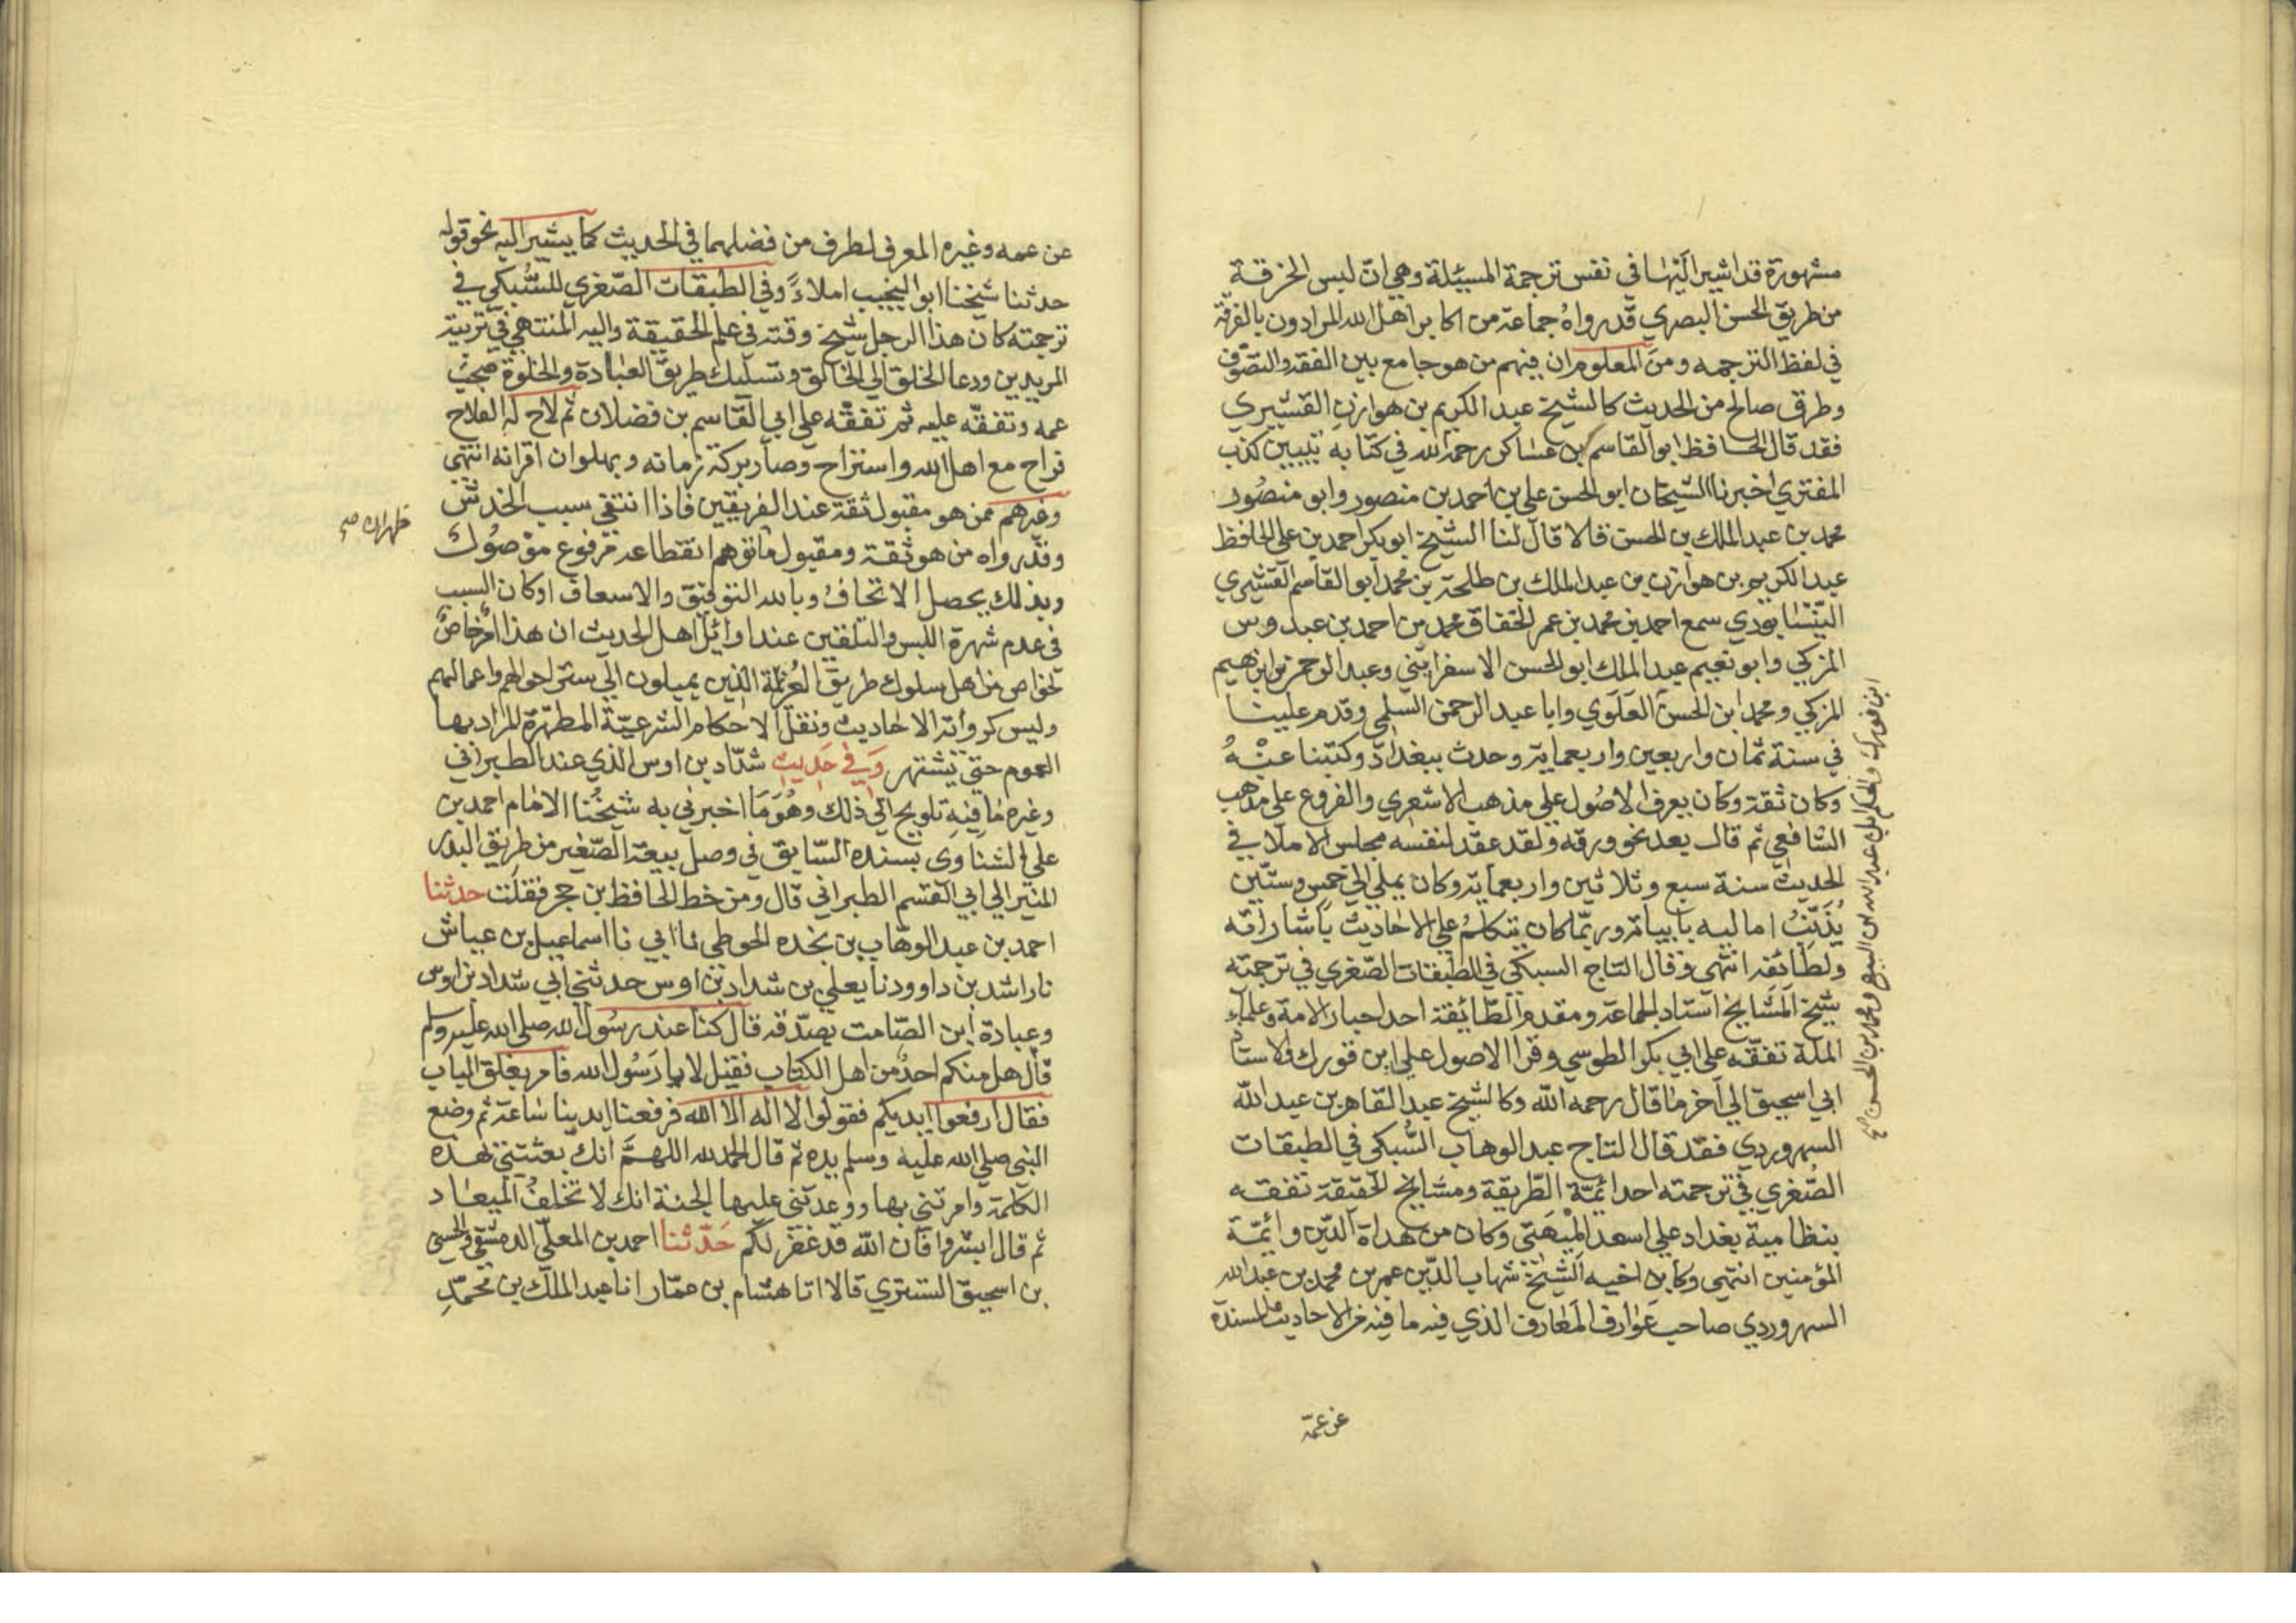 مشهورة قد اشير اليها في نفس ترجمة المسيئلة وهي ان لبس الخرقة
من طريق الحسن البصري قد رواه جماعة من اكابر اهل الله المرادون بالفرقة
في لفظ الترجمه ومن المعلوم ان فيهم من هو جامع بين الفقه والتصوف
وطرق صالح من الحديث كالشيخ عبد الكريم بن هوازن القشيري
فقد قال الحافظ ابو القاسم بن عساكر رحمه الله في كتابه تبيين كذب
المفتري اخبرنا الشيخان ابو الحسن علي بن احمد بن منصور وابو منصور
محمد بن عبد الملك بن الحسن قالا قال لنا الشيخ ابو بكر احمد بن علي الحافظ
عبد الكريم بن هوازن بن عبد الملك بن طلحة بن محمد ابو القاسم القشيري
النيسابوري سمع احمد بن محمد بن عمر الخفاق محمد بن احمد بن عبدوس
المزكي وابو نعيم عبد الملك ابو الحسن الاسفرايني وعبد الرحمن بن ابراهيم
المزكي ومحمد ابن الحسن العلوي وابا عبد الرحمن السلمي وقدم علينا
في سنة ثمان واربعين واربعماية وحدث ببغداد وكتبنا عنه
وكان ثقة وكان يعرف الاصول علي مذهب الاشعري والفروع علي مذهب
الشافعي ثم قال بعد نحو ورقه ولقد عقد لنفسه مجلس الاملا في
الحديث سنة سبع وثلاثين واربعماية وكان يملي الي خمس وستين
يذنب اماليه بابياته وربما كان يتكلم علي الاحاديث باشاراته
ولطائفه انتهي وقال التاج السبكي في الطبقات الصغري في ترجمته
شيخ المشايخ استاد الجماعة ومقدم الطائفة احد احبار الامة وعلماء
الملة تفقه علي ابي بكر الطوسي وقرا الاصول علي ابن فورك والاستاذ
ابي اسحيق الي آخر ما قال رحمه الله وكالشيخ عبد القاهر بن عبد الله
السهروردي فقد قال التاج عبد الوهاب السبكي في الطبقات
الصغري في ترجمته احد ائمة الطريقة ومشايخ الحقيقة تفقه
بنظامية بغداد علي اسعد الميهني وكان من هداة الدين وائمة
المؤمنين انتهي وكابن اخيه الشيخ شهاب الدين عمر بن محمد بن عبد الله
السهروردي صاحب عوارف المعارف الذي فيه ما فيه من الاحاديث المسندة
ابن فورك والحكم ابي عبد الله بن البيع ومحمد بن الحسن صح
عن عمه
عن عمه وغيره المعرف لطرف من فضلهما في الحديث كما يشير اليه نحو قوله
حدثنا شيخنا ابو النجيب املاءً وفي الطبقات الصغري للسبكي في
ترجمته كان هذا الرجل شيخ وقته في علم الحقيقة واليه المنتهي في تربية
المريدين ودعا الخلق الي الخالق وتسليك طريق العبادة والخلوة صحب
عمه وتفقه عليه ثم تفقه علي ابي القاسم بن فضلان ثم لاح له الفلاح
فراح مع اهل الله واستراح وصار بركة زمانه وبهلوان اقرانه انتهي
وغيرهم ممن هو مقبول ثقة عند الفريقين فاذا انتفي سبب الخدش
وقد رواه من هو ثقة ومقبول ما توهم انقطاعه مرفوع موصول
ظهر ان صح
وبذلك يحصل الاتحاف وبالله التوفيق والاسعاف او كان السبب
في عدم شهرة اللبس والتلقين عند اوائل اهل الحديث ان هذا امر خاص
لخواص من اهل سلوك طريق العزيمة الذين يميلون الي ستر احوالهم واعمالهم
وليس كرواية الاحاديث ونقل الاحكام الشرعية المطهرة المراد بها
العموم حتي يشتهر وفي حديث شداد بن اوس الذي عند الطبراني
وغيره ما فيه تلويح الي ذلك وهو ما اخبرني به شيخنا الامام احمد بن
علي الشناوي بسنده السابق في وصل بيعة الصغير من طريق البدر
المنير الي ابي القسم الطبراني قال ومن خط الحافظ بن حجر فقلت حدثنا
احمد بن عبد الوهاب بن نجده الحوطي ثنا ابي نا اسماعيل بن عياش
نا راشد بن داوود نا يعلي بن شداد بن اوس حدثني ابي شداد بن اوس
وعبادة ابن الصامت يصدقه قال كنا عند رسول الله صلي الله عليه وسلم
قال هل منكم احد من اهل الكتاب فقيل لا يا رسول الله فامر بغلق الباب
فقال ارفعوا ايديكم فقولوا لا اله الا الله فرفعنا ايدينا ساعة ثم وضع
النبي صلي الله عليه وسلم يده ثم قال الحمد لله اللهم انك بعثتني بهذه
الكلمة وامرتني بها ووعدتني عليها الجنة انك لا تخلف الميعاد
ثم قال ابشروا فان الله قد غفر لكم حدثنا احمد بن المعلي الدمشقي والحسين
بن اسحيق التستري قالا انا هشام بن عمار انا عبد الملك بن محمد